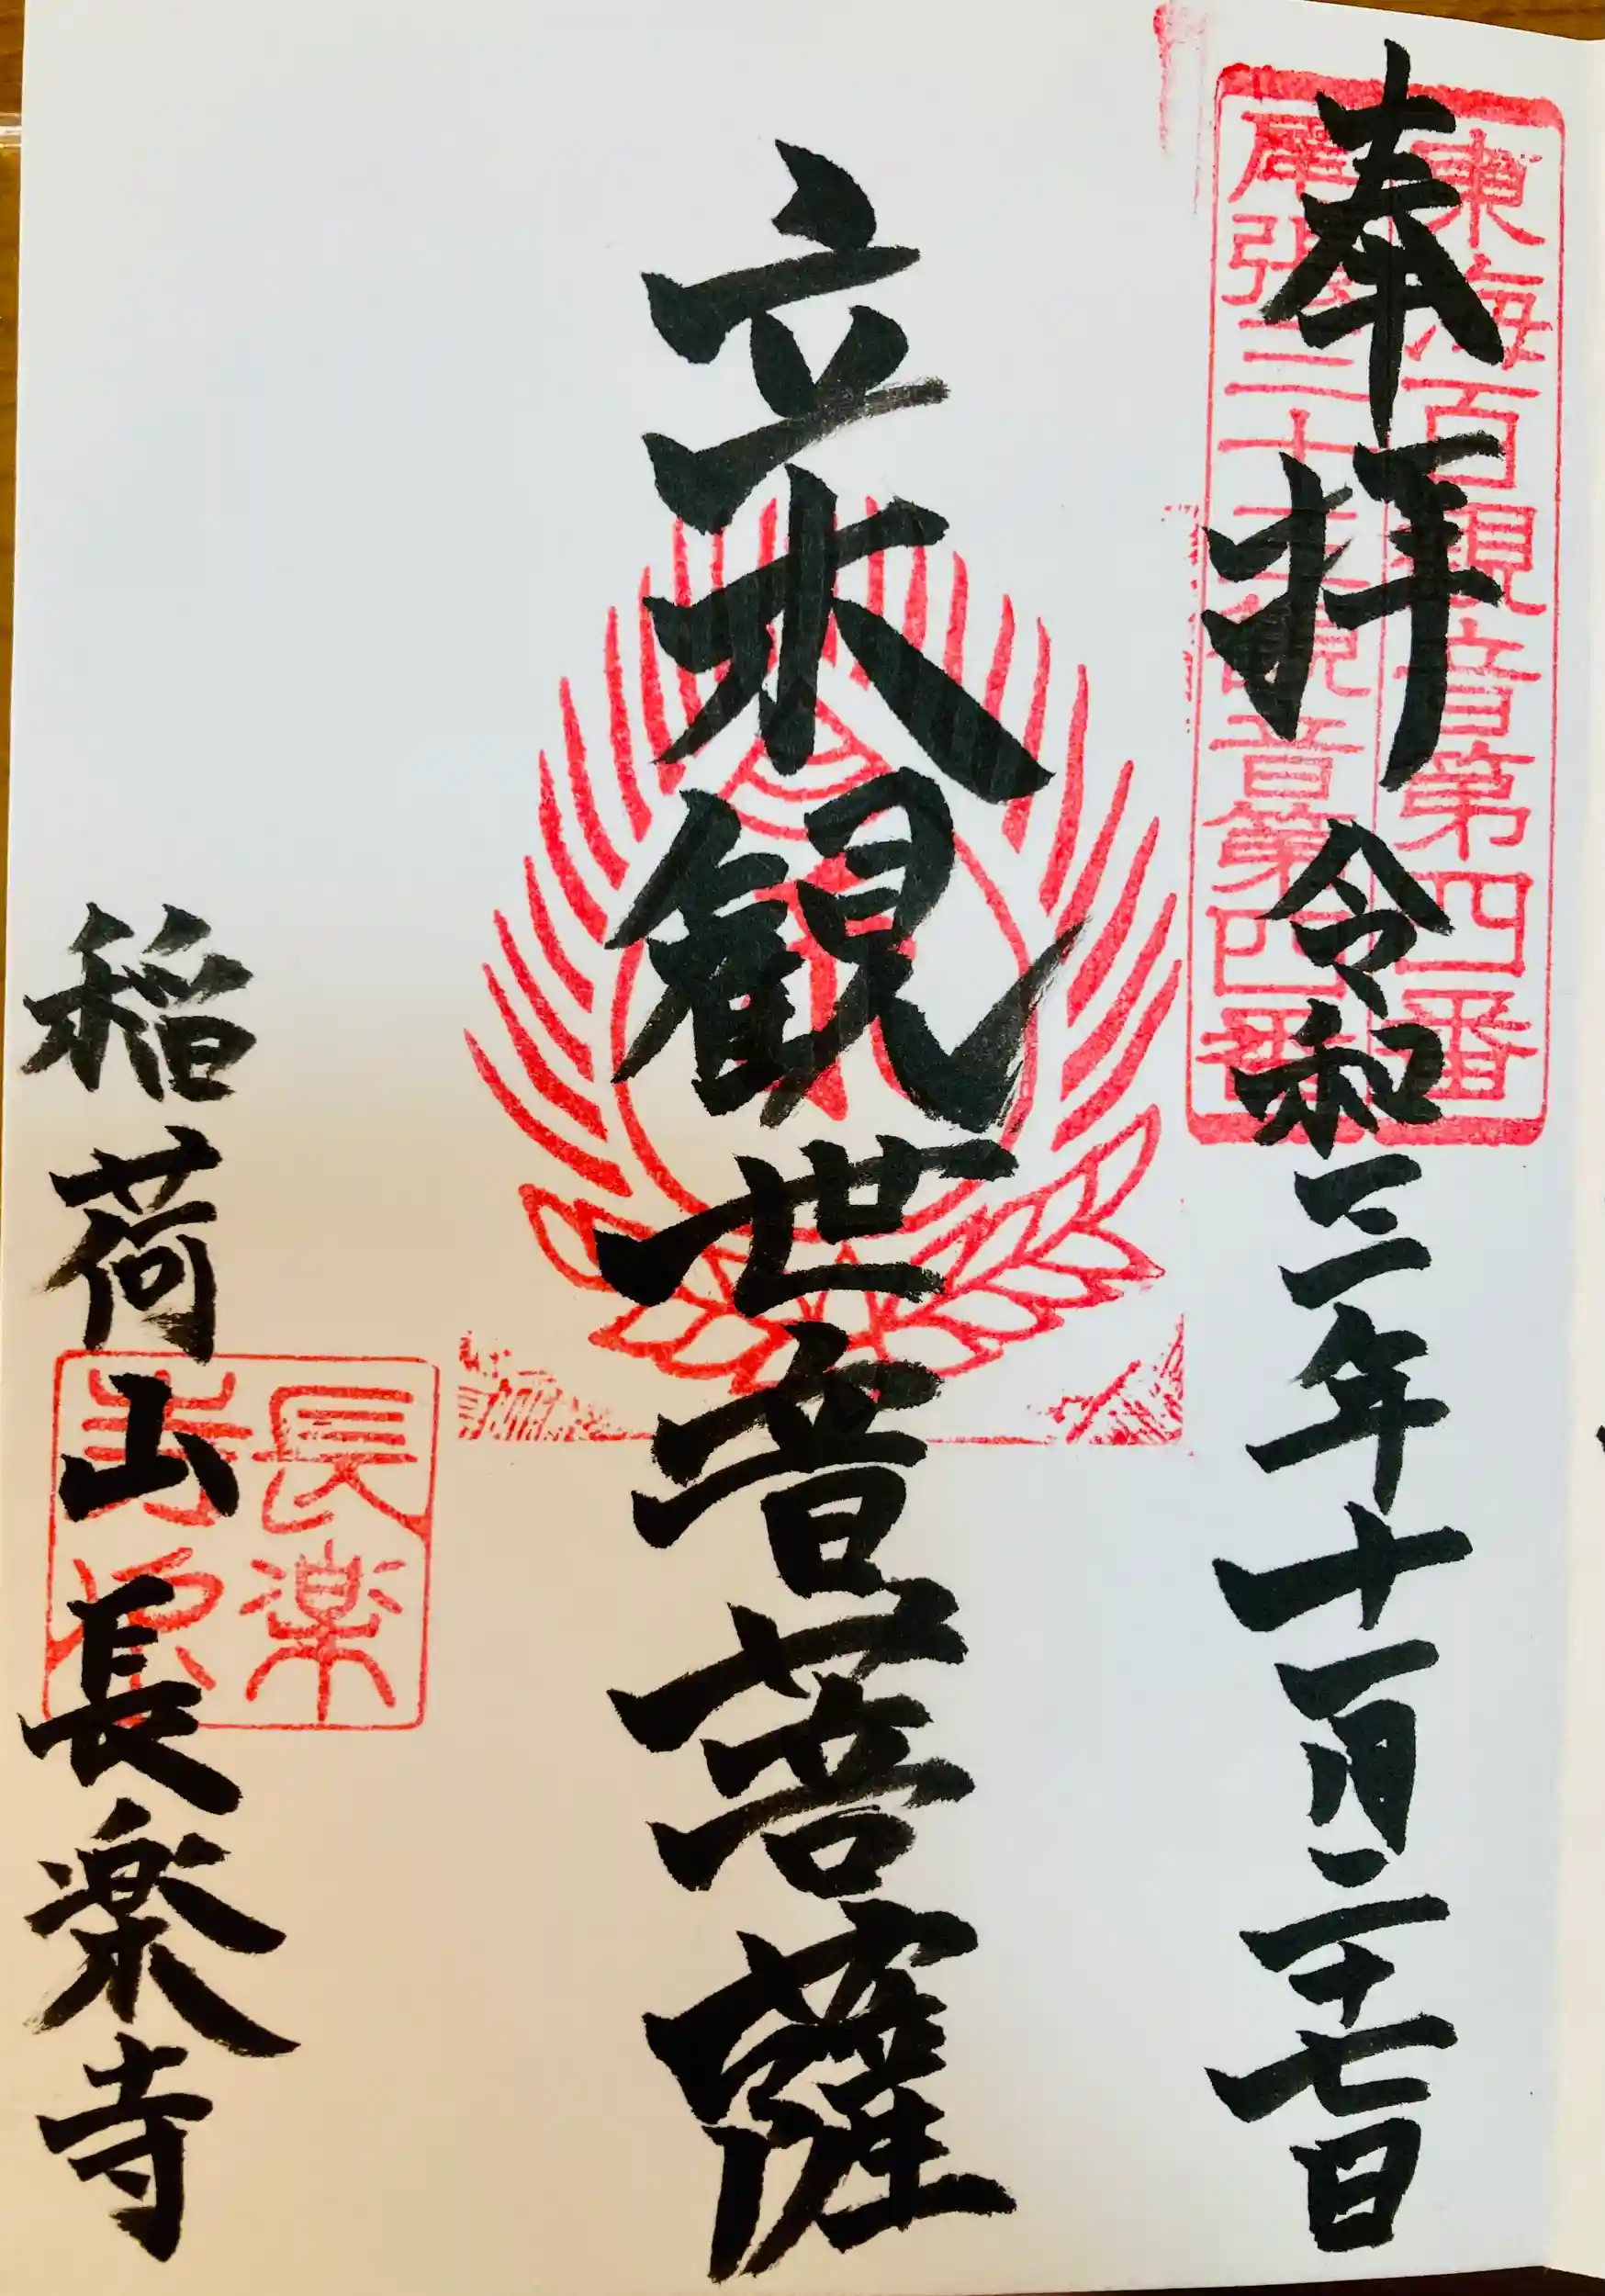 東海百観音第四番
尾張三十三観音第四番
奉拝 令和三年十一月二十七日
立木観世音菩薩
稲荷山長楽寺
長楽
寺印